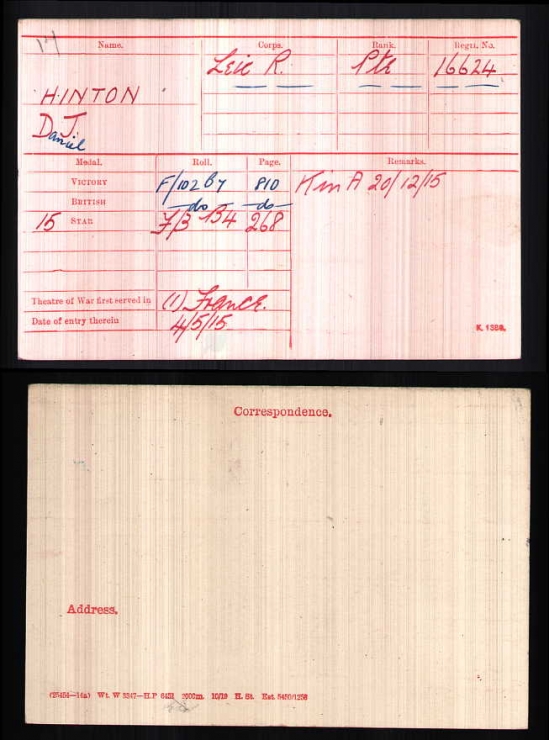 Name. Corps. Rank. Regtl. No.
Leic R. Pte 16624
HINTON
D.J.
Daniel
Medal. Roll. Page. Remarks.
VICTORY F/102 B7 810 K in A 20/12/15
BRITISH do do
15 STAR F/3 B4 268
Theatre of War first served in (1) France.
Date of entry therein 4/5/15
K. 1380.
Correspondence.
Address.
Wt. W 5347—H.P 2000m. 10/19 H. St.